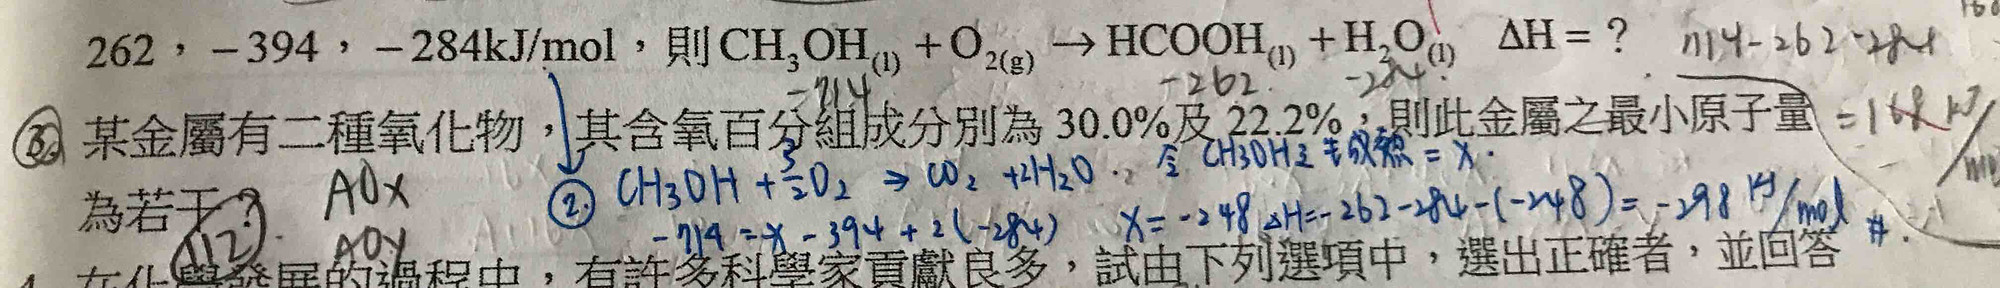 262，－394，－284kJ/mol，則CH₃OH₍ₗ₎＋O₂₍g₎→HCOOH₍ₗ₎＋H₂O₍ₗ₎ ΔH＝？ 714-262-284
-714 -262 -284
③ 某金屬有二種氧化物，其含氧百分組成分別為 30.0%及 22.2%，則此金屬之最小原子量 =168 kJ/mol
② CH3OH + 3/2O2 → CO2 + 2H2O . 令 CH3OH之生成熱 = X.
為若干？ AOx
(112) AOy
-714 = -X - 394 + 2(-284) X = -248 ΔH = -262-284-(-248) = -298 kJ/mol #.
在化學發展的過程中，有許多科學家貢獻良多，試由下列選項中，選出正確者，並回答